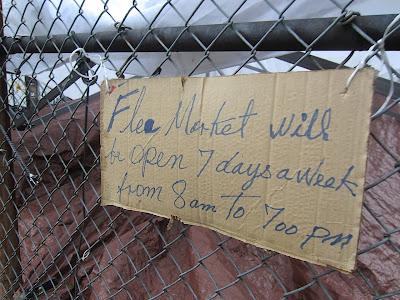 Flea Market will
be open 7 days a week
from 8 am To 700 pm